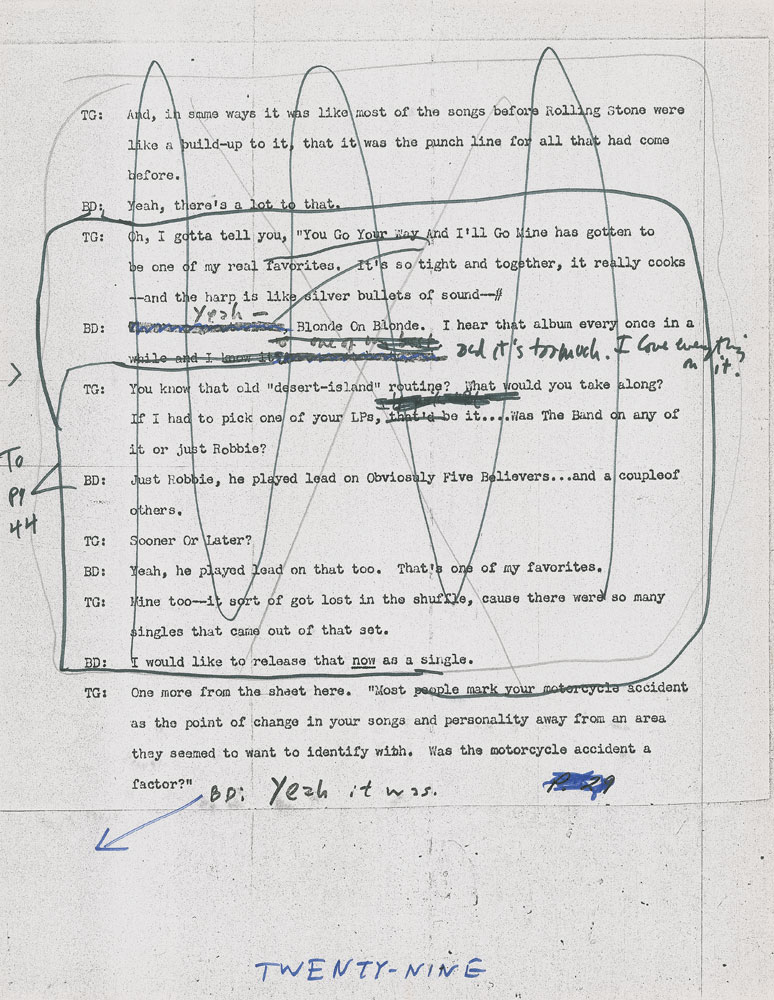 TG: And, in some ways it was like most of the songs before Rolling Stone were
like a build-up to it, that it was the punch line for all that had come
before.
BD: Yeah, there's a lot to that.
TG: Oh, I gotta tell you, "You Go Your Way And I'll Go Mine has gotten to
be one of my real favorites. It's so tight and together, it really cooks
--and the harp is like silver bullets of sound--#
Yeah -
BD: Blonde On Blonde. I hear that album every once in a
one of
while and I know it and it's too much. I love everything
on it!
TG: You know that old "desert-island" routine? What would you take along?
If I had to pick one of your LPs, that'd be it....Was The Band on any of
it or just Robbie?
BD: Just Robbie, he played lead on Obviosuly Five Believers...and a coupleof
others.
To
pg
44
TG: Sooner Or Later?
BD: Yeah, he played lead on that too. That's one of my favorites.
TG: Mine too--it sort of got lost in the shuffle, cause there were so many
singles that came out of that set.
BD: I would like to release that now as a single.
TG: One more from the sheet here. "Most people mark your motorcycle accident
as the point of change in your songs and personality away from an area
they seemed to want to identify with. Was the motorcycle accident a
factor?"
BD: Yeah it was.
P. 29
TWENTY-NINE